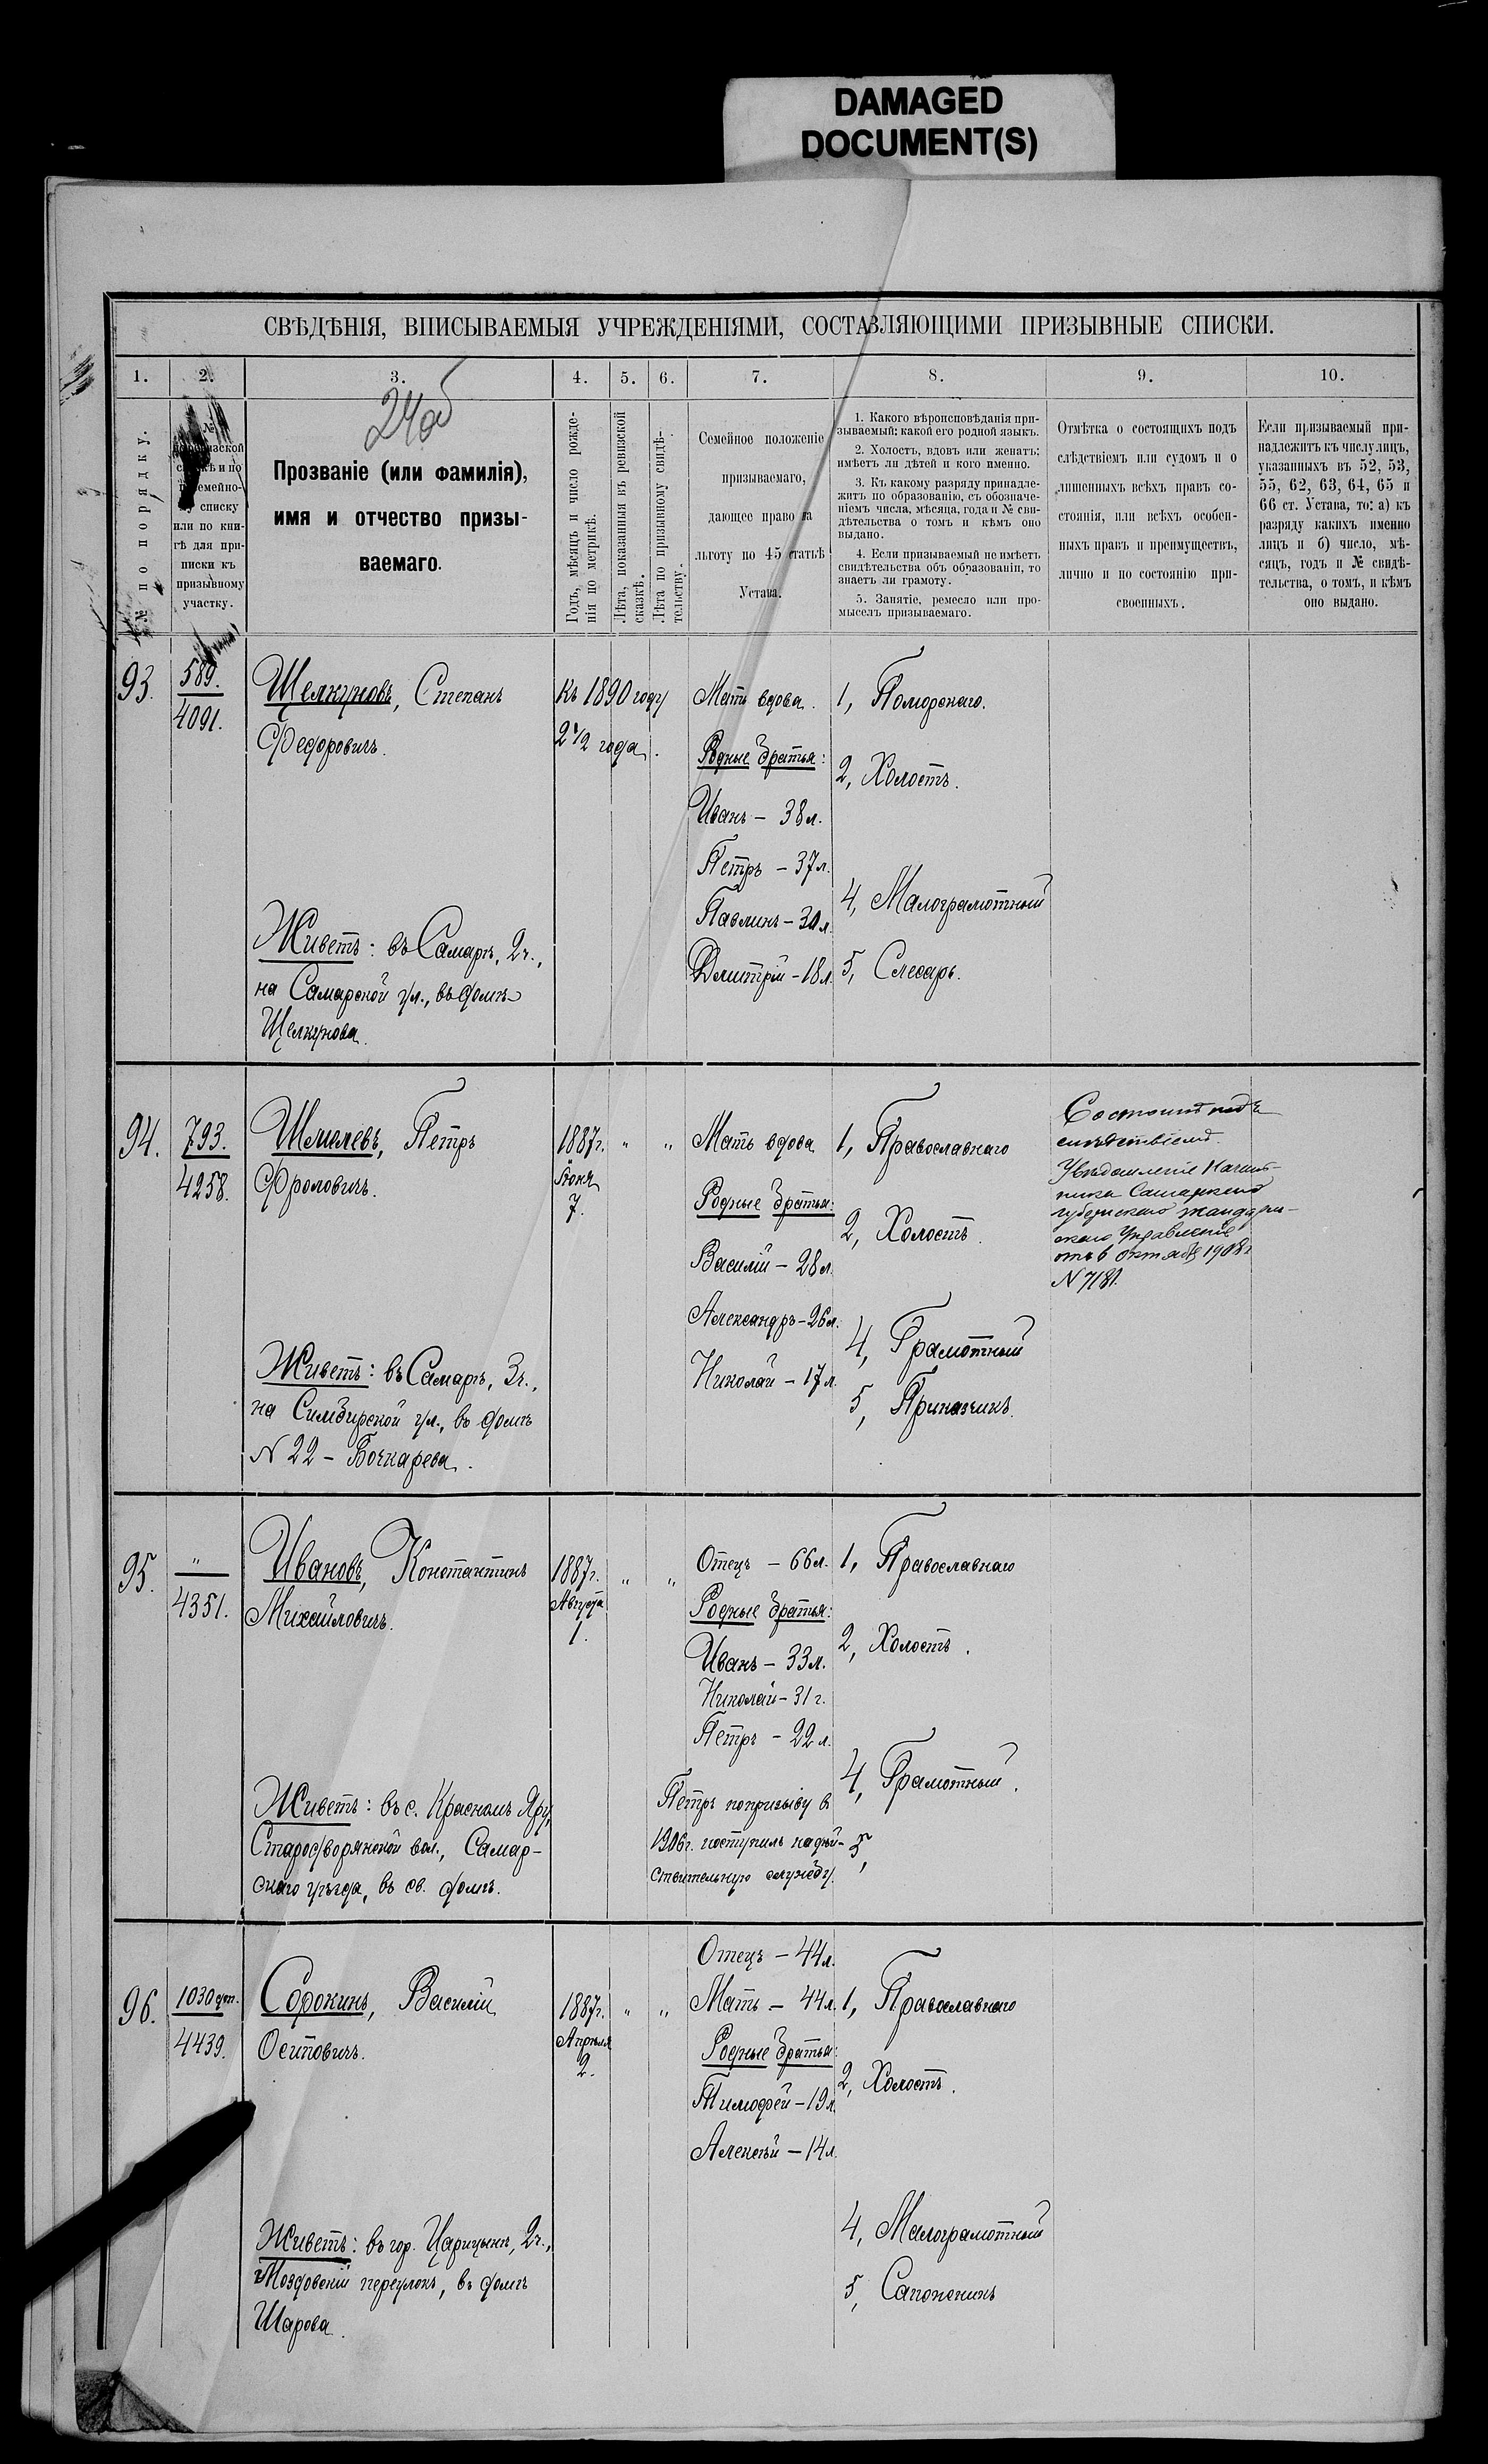 DAMAGED
DOCUMENT(S)
СВѢДѢНІЯ, ВПИСЫВАЕМЫЯ УЧРЕЖДЕНІЯМИ, СОСТАВЛЯЮЩИМИ ПРИЗЫВНЫЕ СПИСКИ.
1. 2. 3. 4. 5. 6. 7. 8. 9. 10.
24об
№ по порядку.
№
сказкѣ и по
посемейно-
му списку
или по кни-
гѣ для при-
писки къ
призывному
участку.
Прозваніе (или фамилія),
имя и отчество призы-
ваемаго.
Годъ, мѣсяцъ и число рожде-
нія по метрикѣ.
Лѣта, показанныя въ ревизской
сказкѣ.
Лѣта по призывному свидѣ-
тельству.
Семейное положеніе
призываемаго,
дающее право на
льготу по 45 статьѣ
Устава.
1. Какого вѣроисповѣданія при-
зываемый; какой его родной языкъ.
2. Холостъ, вдовъ или женатъ;
имѣетъ ли дѣтей и кого именно.
3. Къ какому разряду принадле-
житъ по образованію, съ обозначе-
ніемъ числа, мѣсяца, года и № сви-
дѣтельства о томъ и кѣмъ оно
выдано.
4. Если призываемый не имѣетъ
свидѣтельства объ образованіи, то
знаетъ ли грамоту.
5. Занятіе, ремесло или про-
мыселъ призываемаго.
Отмѣтка о состоящихъ подъ
слѣдствіемъ или судомъ и о
лишенныхъ всѣхъ правъ со-
стоянія, или всѣхъ особен-
ныхъ правъ и преимуществъ,
лично и по состоянію при-
своенныхъ.
Если призываемый при-
надлежитъ къ числу лицъ,
указанныхъ въ 52, 53,
55, 62, 63, 64, 65 и
66 ст. Устава, то: а) къ
разряду какихъ именно
лицъ и б) число, мѣ-
сяцъ, годъ и № свидѣ-
тельства, о томъ, и кѣмъ
оно выдано.
93.
589.
4091.
Щелкуновъ, Степанъ
Федоровичъ.
Живетъ: въ Самарѣ, 2ч.,
на Самарской ул., въ домѣ
Щелкунова.
Къ 1890 году
2 1/2 года.
Мать вдова.
Родные братья:
Иванъ – 38 л.
Петръ – 37 л.
Павлинъ – 30 л.
Дмитрій – 18 л.
1, Поморскаго.
2, Холостъ.
4, Малограмотный
5, Слесарь.
94.
793.
4258.
Шмелевъ, Петръ
Фроловичъ.
Живетъ: въ Самарѣ, 3ч.,
на Симбирской ул., въ домѣ
N 22 – Бочкарева.
1887г.
Іюня
7.
" "
Мать вдова
Родные братья:
Василій – 28 л.
Александръ – 26 л.
Николай – 17 л.
1, Православнаго
2, Холостъ.
4, Грамотный
5, Приказчикъ.
Состоитъ подъ
слѣдствіемъ.
Увѣдомленіе Началь-
ника Самарскаго
губернскаго жандарм-
скаго Управленія
отъ 6 октября 1908г
N 7181.
95.
"
4351.
Ивановъ, Константинъ
Михайловичъ.
Живетъ: въ с. Красномъ Яру,
Стародворянской вол., Самар-
скаго уѣзда, въ св. домѣ.
1887г.
Августа
1.
" "
Отецъ – 66 л.
Родные братья:
Иванъ – 33 л.
Николай – 31 г.
Петръ – 22 л.
Петръ по призыву въ
1906г. поступилъ на дѣй-
ствительную службу.
1, Православнаго
2, Холостъ.
4, Грамотный.
5,
96.
1030 доп.
4439.
Сорокинъ, Василій
Осиповичъ.
Живетъ: въ гор. Царицынѣ, 2ч.,
Моздовскій переулокъ, въ домѣ
Шарова.
1887г.
Апрѣля
2.
" "
Отецъ – 44 л.
Мать – 44 л.
Родные братья:
Тимофей – 19 л.
Алексѣй – 14 л.
1, Православнаго
2, Холостъ.
4, Малограмотный
5, Сапожникъ